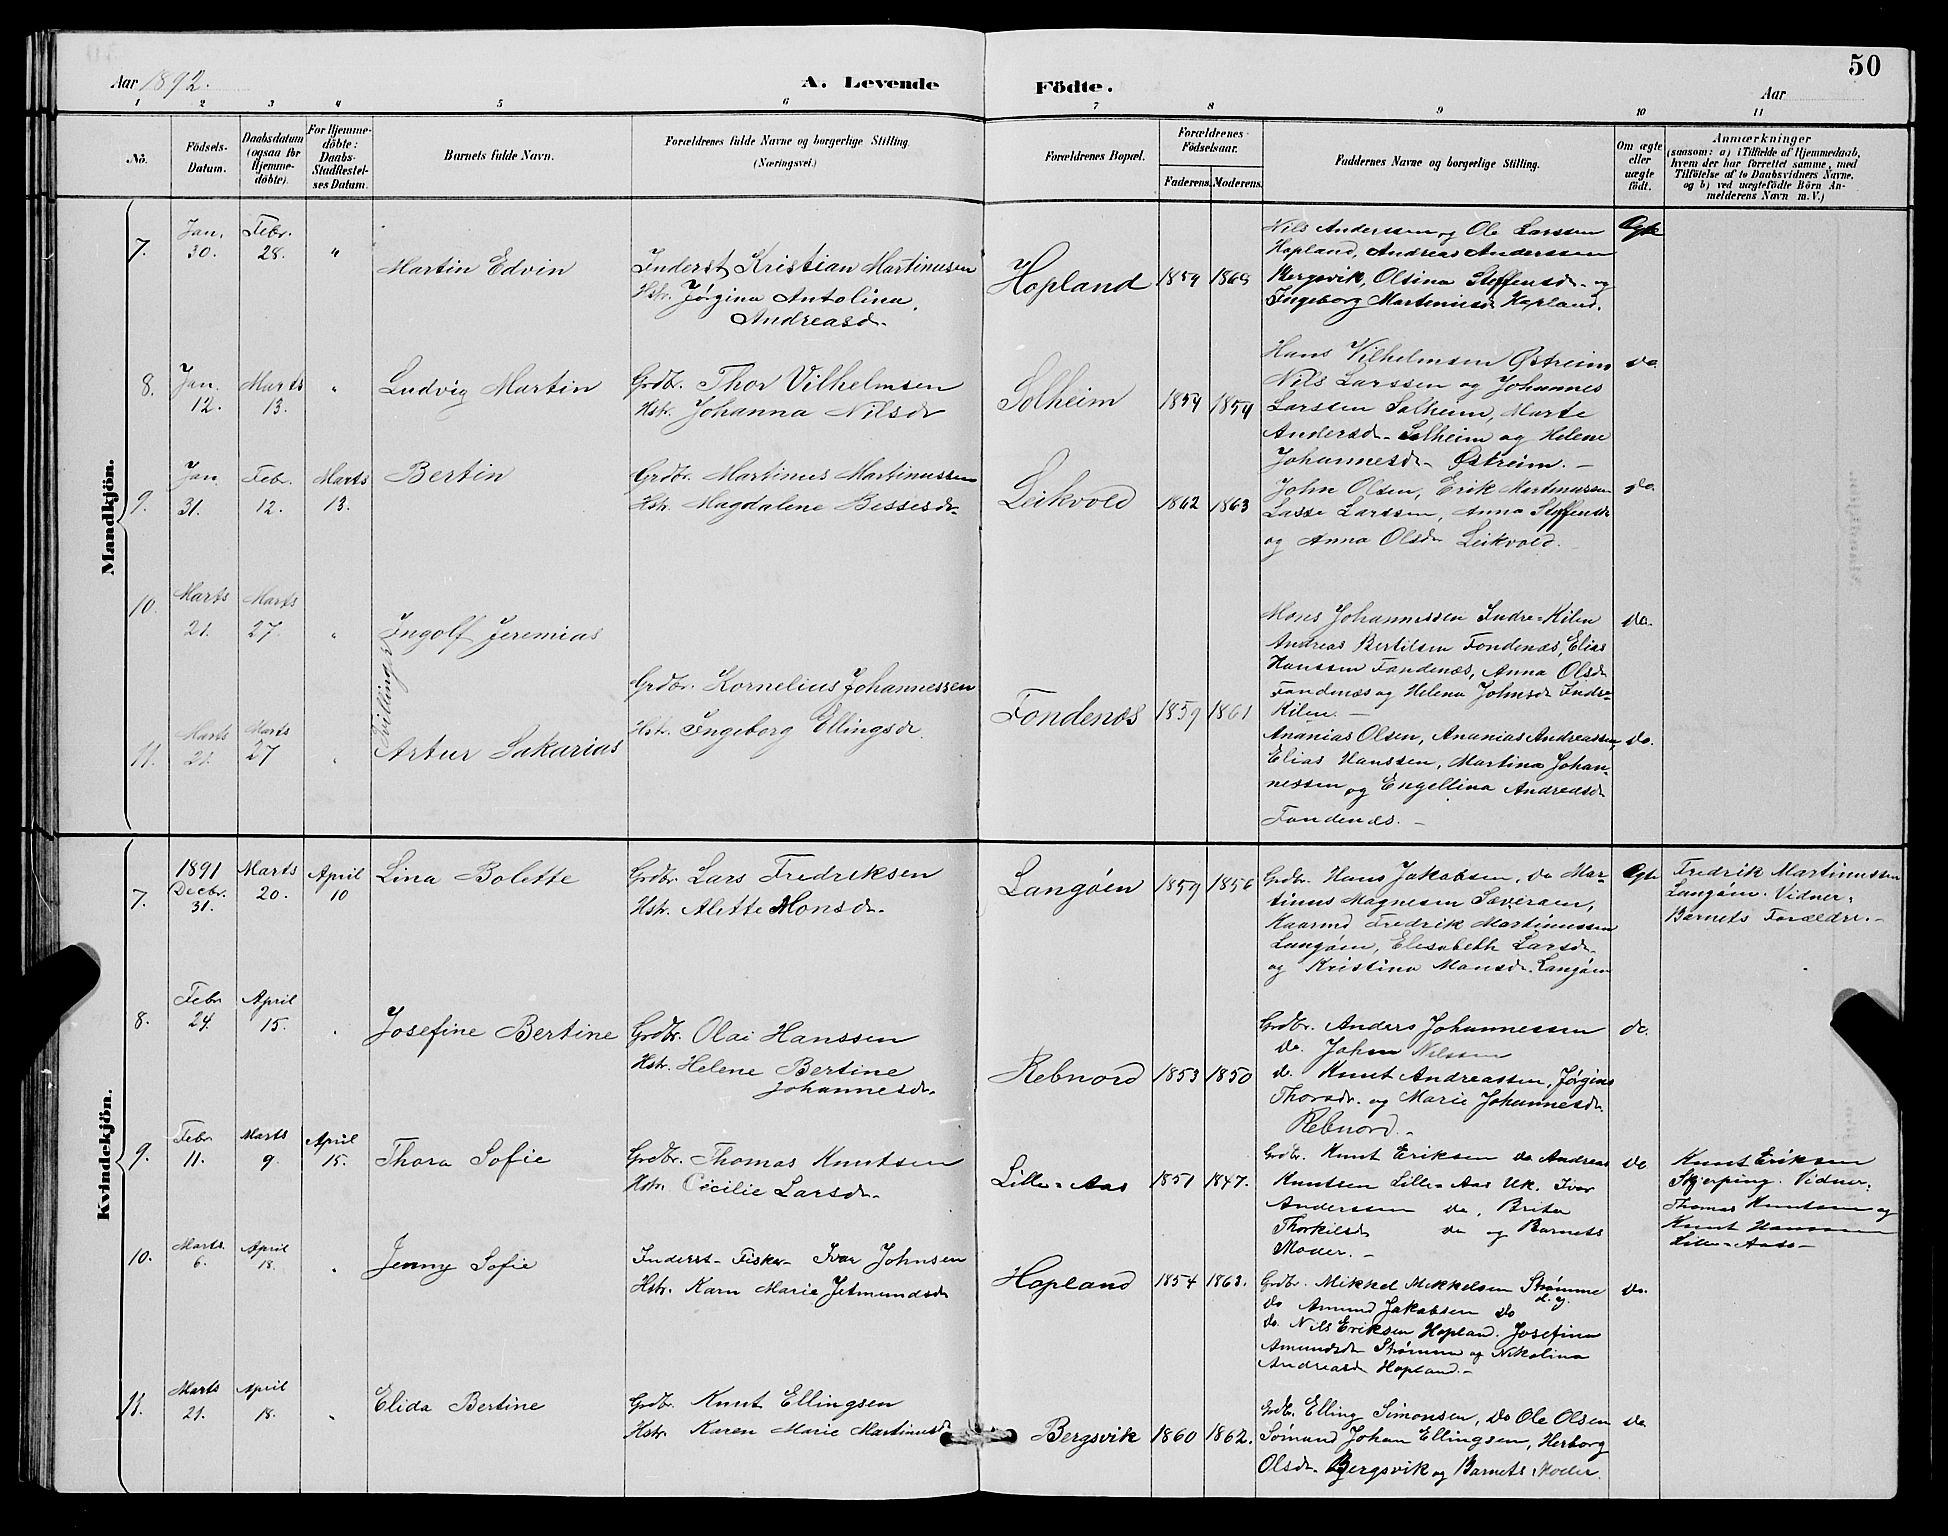 50
Aar 1892.
A. Levende Födte.
Aar
1 2 3 4 5 6 7 8 9 10 11
No.
Födsels-Datum.
Daabsdatum (ogsaa for Hjemme-döbte).
For Hjemme-döbte: Daabs-Stadfæstel-ses Datum.
Barnets fulde Navn.
Forældrenes fulde Navne og borgerlige Stilling. (Næringsvei.)
Forældrenes Bopæl.
Forældrenes Födselsaar.
Faderens. Moderens.
Faddernes Navne og borgerlige Stilling.
Om ægte eller uægte födt.
Anmærkninger
(saasom: a) i Tilfælde af Hjemmedaab,
hvem der har forrettet samme, med
Tilföielse af to Daabsvidners Navne,
og b) ved uægtefödte Börn An-
melderens Navn m. V.)
Mandkjön.
7. Jan. 30. Febr. 28. " Martin Edvin
Inderst Kristian Martinusen
Hstr. Jørgina Antolina
Andreasdr.
Hopland 1859 1865
Nils Anderssen og Ole Larssen
Hopland, Andreas Anderssen
Bergsvik, Olsina Steffensdr. og
Ingeborg Martinusdr. Hopland.
Ægte
8. Jan. 12. Marts 13. " Ludvig Martin
Grdbr. Thor Vilhelmsen
Hstr. Johanna Nilsdr
Solheim 1854 1854
Hans Vilhelmsen Østreim
Nils Larssen og Johannes
Larssen Solheim, Marte
Andersdr. Solheim og Helene
Johannesdr. Østreim. -
do.
9. Jan. 31. Febr. 12. Marts 13. Bertin
Grdbr. Martinus Martinussen
Hstr. Magdalene Bessesdr.
Leikvold 1862 1863
John Olsen, Erik Martinusen
Lasse Larssen, Anna Steffensdr
og Anna Olsdr Leikvold.
do.
10. Marts 21. Marts 27. " Ingolf Jeremias
Tvillinger
Grdbr. Kornelius Johannessen
Hstr. Ingeborg Ellingsdr.
Fondenæs 1859 1861
Mons Johannessen Indre-Kilen
Andreas Bertilsen Fondenæs, Elias
Hanssen Fondenæs, Anna Olsdr
Fondenæs og Helena Johnsdr Indre-
Kilen. -
do.
11. Marts 21. Marts 27 " Artur Sakarias
Ananias Olsen, Ananias Andreassen,
Elias Hanssen, Martina Johan-
nessen og Engellina Andreasdr
Fondenæs. -
do.
Kvindekjön.
7. 1891 Decbr. 31. Marts 20. April 10 Lina Bolette
Grdbr. Lars Fredriksen
Hstr. Alette Monsdr.
Langøen 1859 1856
Grdbr. Hans Jakobsen, do Mar-
tinus Magnesen Sæveraen,
Kaarmd Fredrik Martinussen
Langøen, Elisabeth Larsdr.
og Kristina Monsdr. Langøen
Ægte
Fredrik Martinussen
Langøen. Vidner:
Barnets Forældre. -
8. Febr 24. April 15. " Josefine Bertine
Grdbr. Olai Hanssen
Hstr. Helene Bertine
Johannesdr.
Rebnord 1853 1850
Grdbr. Anders Johannessen
do. Johan Nilssen
do. Knut Andreassen, Jørgine
Thorsdr. og Marie Johannesdr.
Rebnord. -
do.
9. Febr 11. Marts 9. April 15. Thora Sofie
Grdbr. Thomas Knutsen
Hstr. Cecilie Larsdr.
Lille-Aas 1851 1847.
Grdbr. Knut Eriksen do Andreas
Knutsen Lille-Aas Uk. Ivar
Anderssen do, Brita
Thorkilsdr do og Barnets
Moder. -
do
Knut Eriksen
Skjerping. Vidner:
Thomas Knutsen og
Knut Hanssen
Lille-Aas -
10. Marts 6. April 18. " Jenny Sofie
Inderst-Fisker Ivar Johnsen
Hstr. Karn Marie Jetmundsdr
Hopland 1854 1863.
Grdbr. Mikkel Mikkelsen Strømme
do Amund Jakobsen do
do. Nils Eriksen Hopland. Josefina
Amundsdr Strømme og Nikolina
Andreasdr Hopland. -
do.
11. Marts 21. April 18. " Elida Bertine
Grdbr. Knut Ellingsen
Hstr. Karen Marie Martinusdr
Bergsvik 1860 1862.
Grdbr. Elling Simonsen, do Ole Olsen
Sømand Johan Ellingsen, Herborg
Olsdr. Bergsvik og Barnets Moder.
do